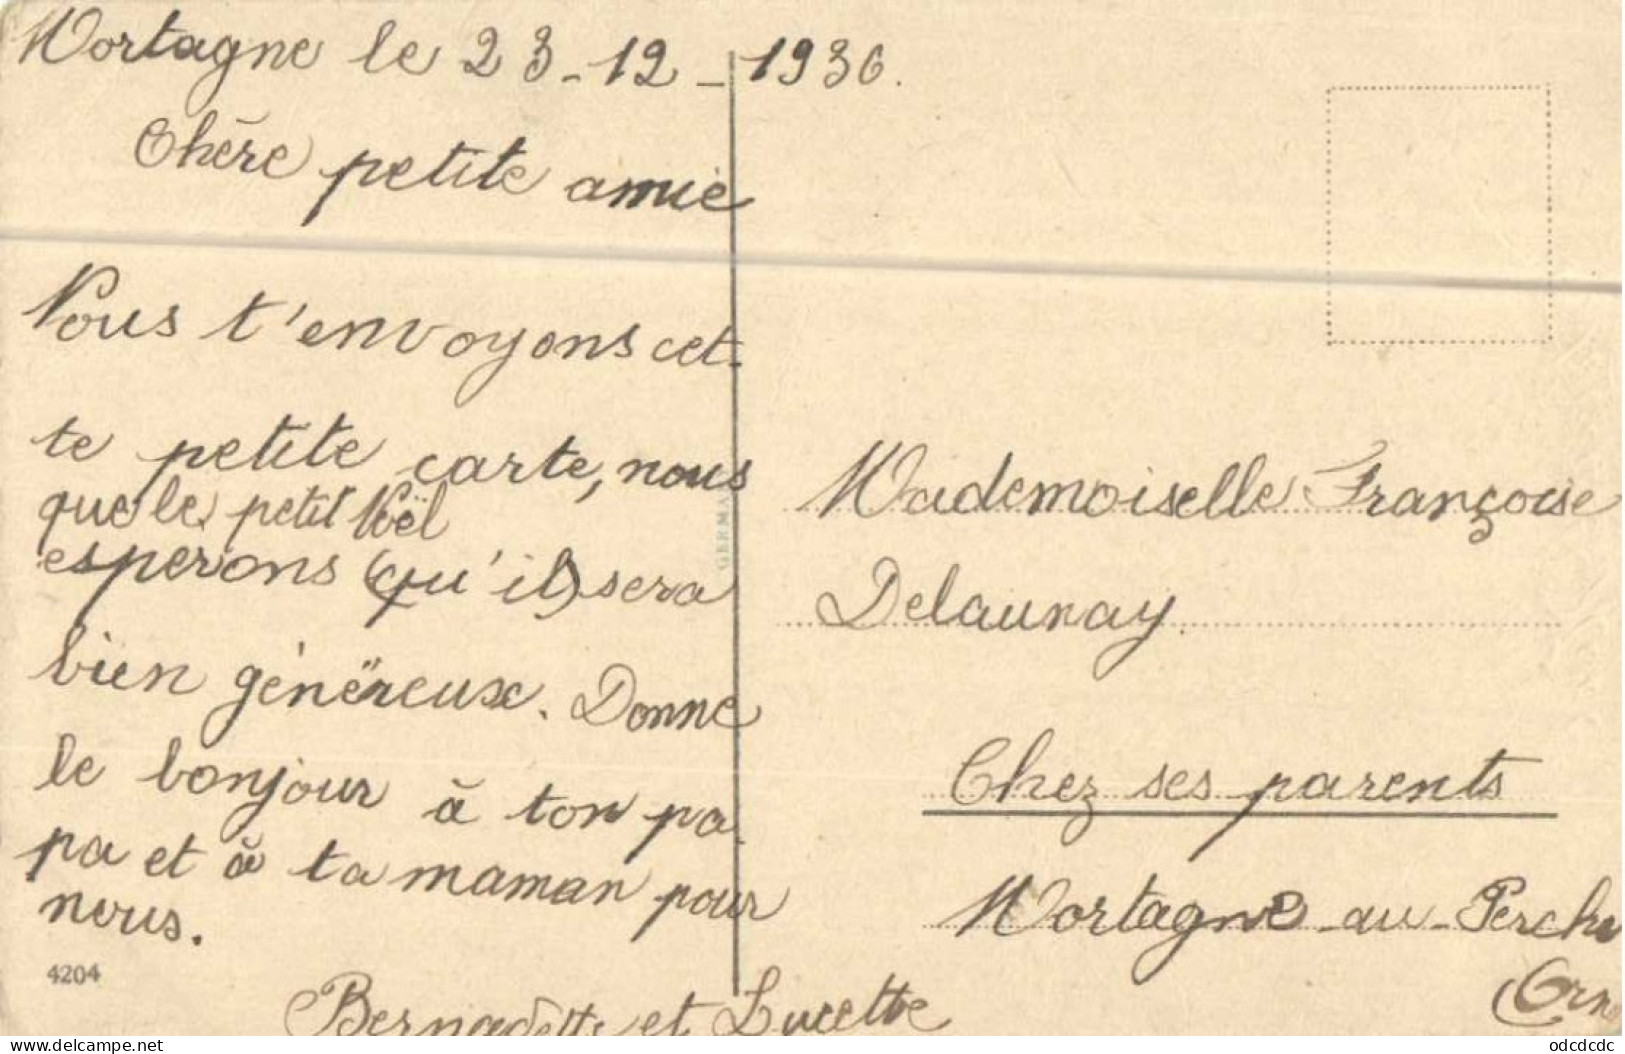 Mortagne le 23-12-1936.
Chère petite amie
Nous t'envoyons cet-
te petite carte, nous
que le petit Noël
esperons (qu'il) sera
bien généreuse. Donne
le bonjour à ton pa-
pa et à ta maman pour
nous.
Bernadette et Lucette
4204
GERMA
Mademoiselle Françoise
Delaunay.
Chez ses parents
Mortagne-au-Perche
(Orn
www.delcampe.net
odcdcdc